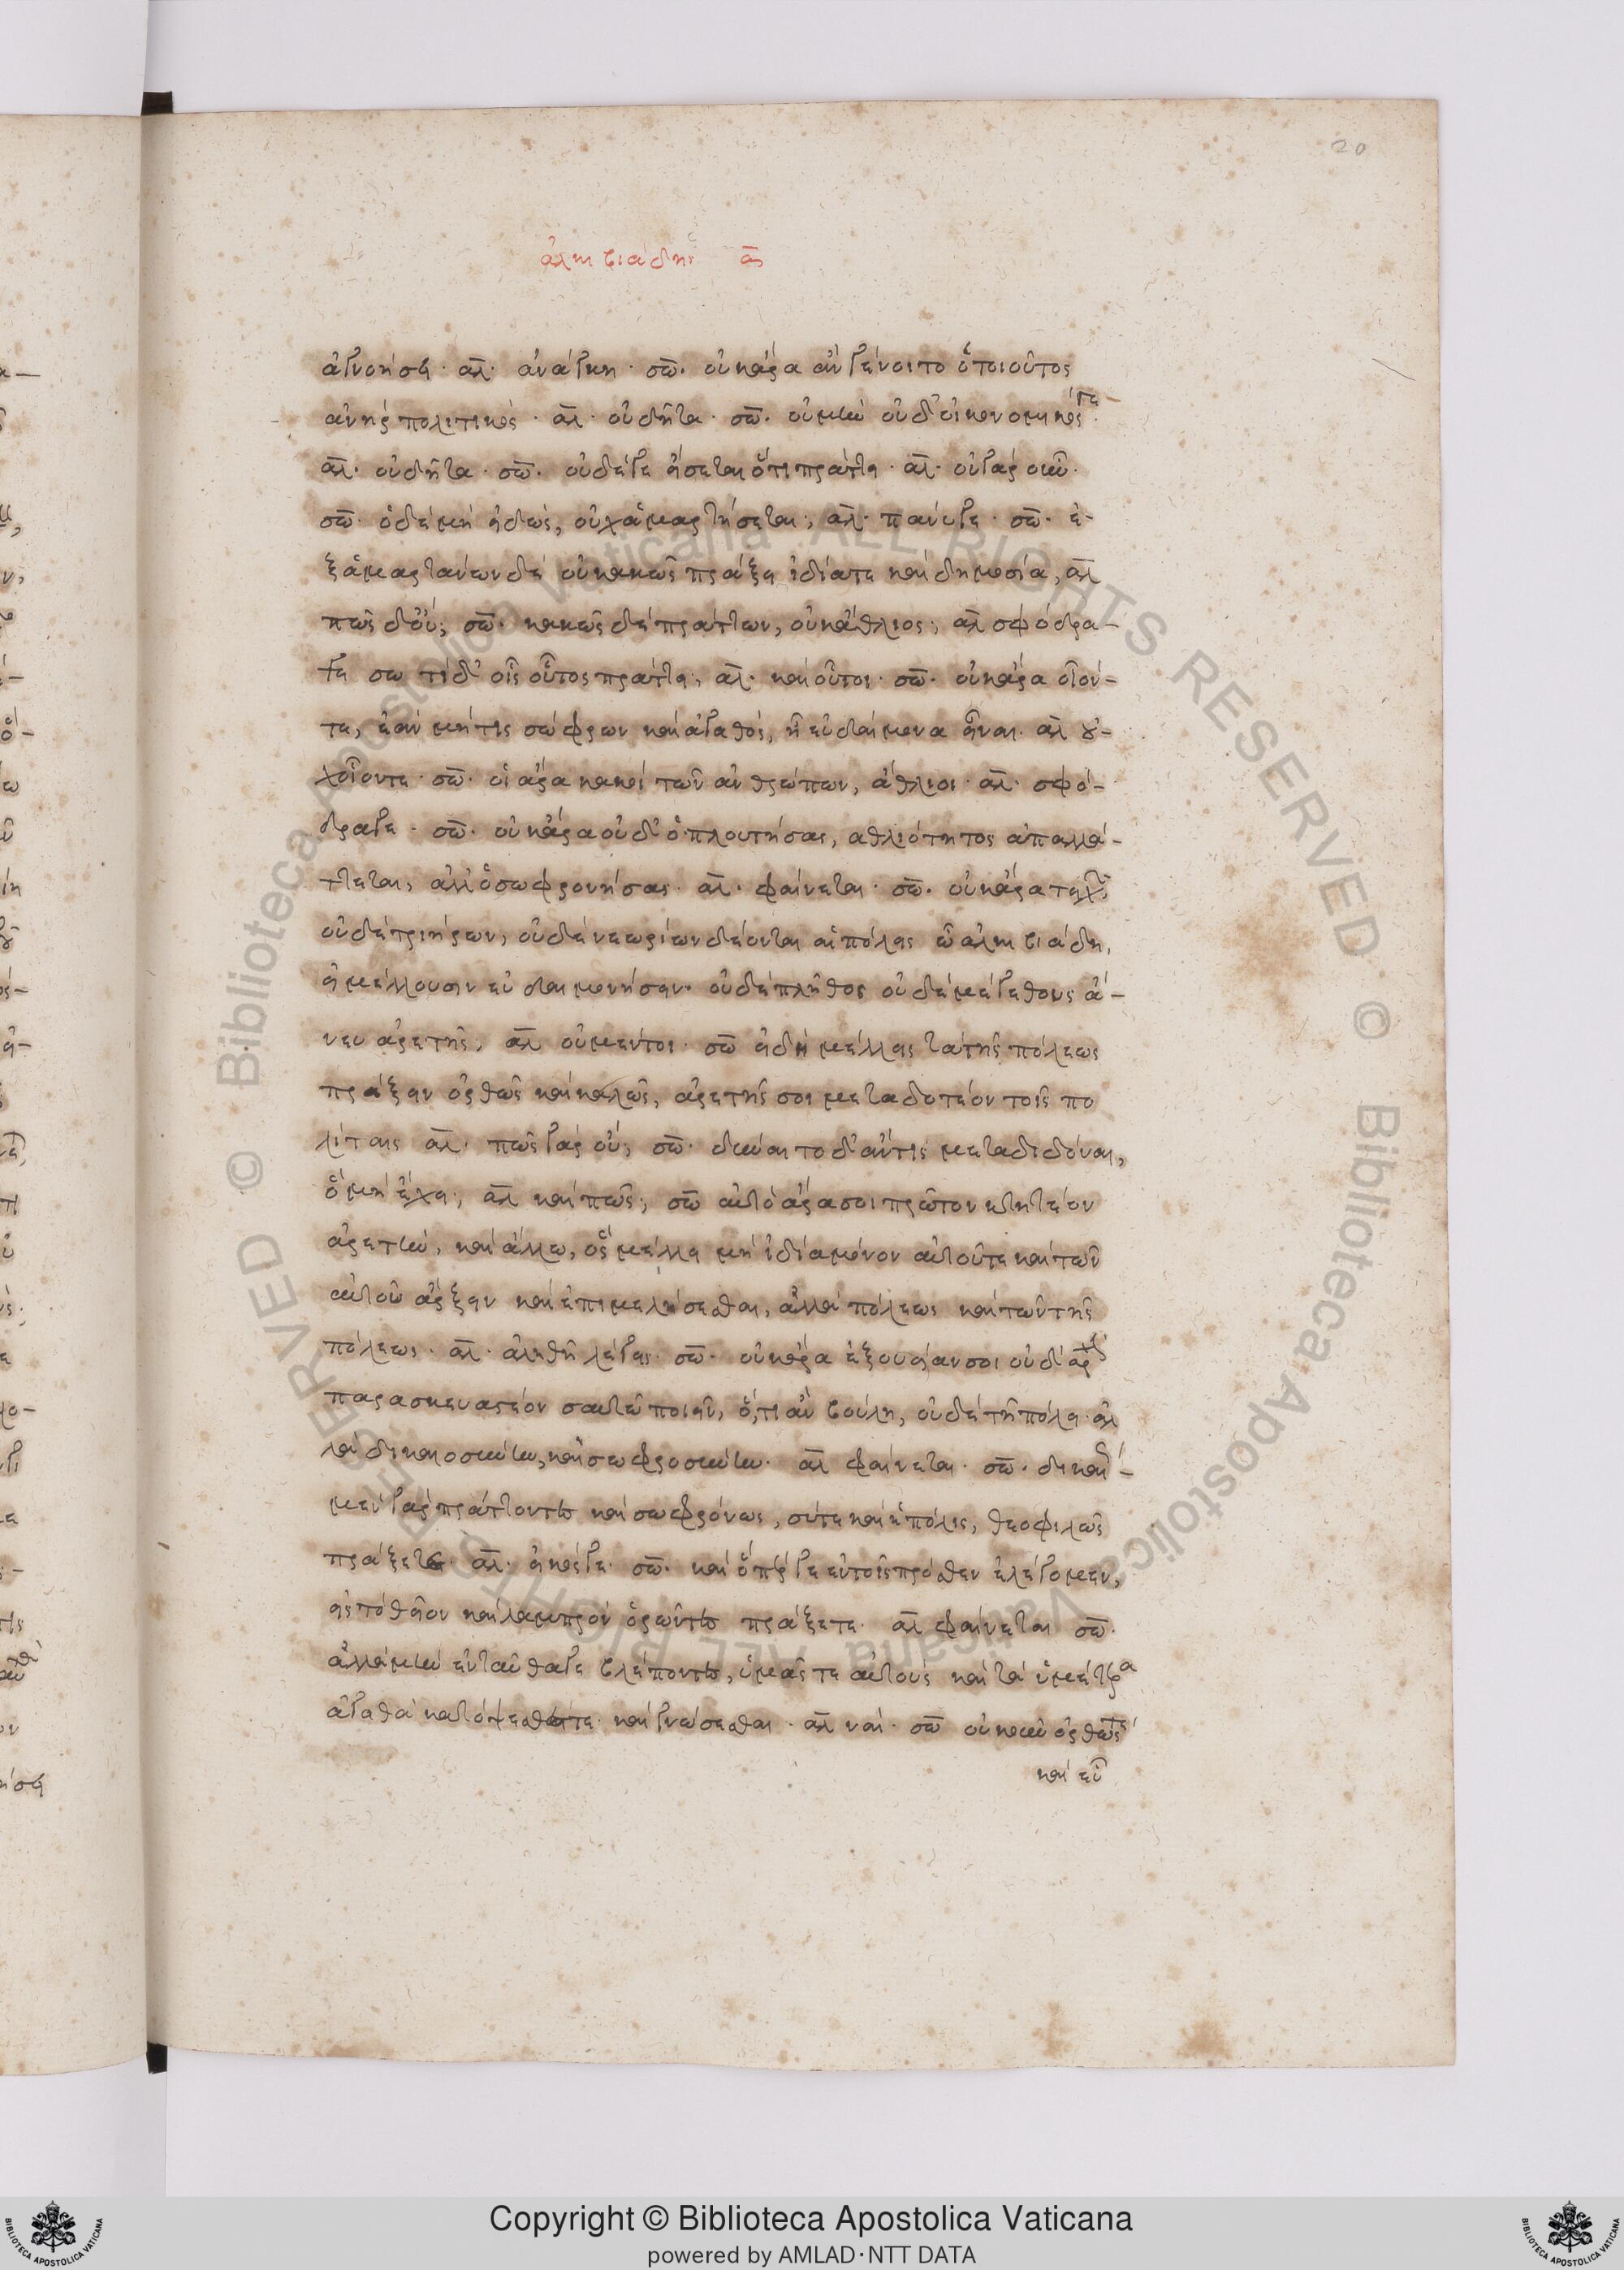 20
ἀλκιβιάδης ᾱ
ἀγνοήσει · ἀλ · ἀνάγκη · σω · οὐκ ἄρα ἂν γένοιτο ὁ τοιοῦτος
ἀνὴρ πολιτικός · ἀλ · οὐ δῆτα · σω · οὐ μὴν οὐδ' οἰκονομικός γε
ἀλ · οὐ δῆτα · σω · οὐδέ γε εἴσεται ὅ τι πράττει · ἀλ · οὐ γὰρ οὖν ·
σω · ὁ δὲ μὴ εἰδώς, οὐχ ἁμαρτήσεται; ἀλ · πάνυ γε · σω · ἐ-
ξαμαρτάνων δὲ οὐ κακῶς πράξει ἰδίᾳ τε καὶ δημοσίᾳ, ἀλ
πῶς δ' οὔ; σω · κακῶς δὲ πράττων, οὐκ ἄθλιος; ἀλ σφόδρα
γε σω τί δ' οἷς οὗτος πράττει; ἀλ · καὶ οὗτοι · σω · οὐκ ἄρα οἷόν-
τε, ἐὰν μή τις σώφρων καὶ ἀγαθός, ᾖ εὐδαίμονα εἶναι · ἀλ οὐ-
χ οἷόντε · σω · οἱ ἄρα κακοὶ τῶν ἀνθρώπων, ἄθλιοι · ἀλ · σφό-
δρα γε · σω · οὐκ ἄρα οὐδ' ὁ πλουτήσας, ἀθλιότητος ἀπαλλά-
ττεται, ἀλλ' ὁ σωφρονήσας · ἀλ · φαίνεται · σω · οὐκ ἄρα τειχῶν
οὐδὲ τριήρων, οὐδὲ νεωρίων δέονται αἱ πόλεις ὦ ἀλκιβιάδη,
εἰ μέλλουσιν εὐδαιμονήσειν · οὐδὲ πλῆθος οὐδὲ μέγεθους ἄ-
νευ ἀρετῆς, ἀλ οὐ μέντοι · σω εἰ δὴ μέλλεις τὰ τῆς πόλεως
πράξειν ὀρθῶς καὶ καλῶς, ἀρετῆς σοι μεταδοτέον τοῖς πο
λίταις ἀλ · πῶς γὰρ οὔ; σω · δύναιτο δ' ἄν τις μεταδιδόναι,
ὃ μὴ ἔχει; ἀλ καὶ πῶς; σω αὐτὸ ἄρα σοι πρῶτον κτητέον
ἀρετήν, καὶ ἄλλῳ, ὃς μέλλει μὴ ἰδίᾳ μόνον αὑτοῦ τε καὶ τῶν
αὑτοῦ ἄρξειν καὶ ἐπιμελήσεσθαι, ἀλλὰ πόλεως καὶ τῶν τῆς
πόλεως · ἀλ · ἀληθῆ λέγεις · σω · οὐκ ἄρα ἐξουσίαν σοι οὐδ' ἀρχὴν
παρασκευαστέον σαυτῷ ποιεῖν, ὅ,τι ἂν βούλῃ, οὐδὲ τῇ πόλει · ἀλ
λὰ δικαιοσύνην, καὶ σωφροσύνην · ἀλ φαίνεται · σω · δικαίως
μὲν γὰρ πράττοντες καὶ σωφρόνως, σύ τε καὶ ἡ πόλις, θεοφιλῶς
πράξετε · ἀλ · εἰκός γε · σω · καὶ ὅπερ γε ἐν τοῖς πρόσθεν ἐλέγομεν,
εἰς τὸ θεῖον καὶ λαμπρὸν ὁρῶντες πράξετε · ἀλ φαίνεται σω ·
ἀλλὰ μὴν ἐνταῦθα γε βλέποντες, ὑμᾶς τε αὐτοὺς καὶ τὰ ὑμέτερα
ἀγαθὰ κατόψεσθε καὶ γνώσεσθαι · ἀλ ναί · σω οὐκοῦν ὀρθῶς τέ
καὶ εὖ